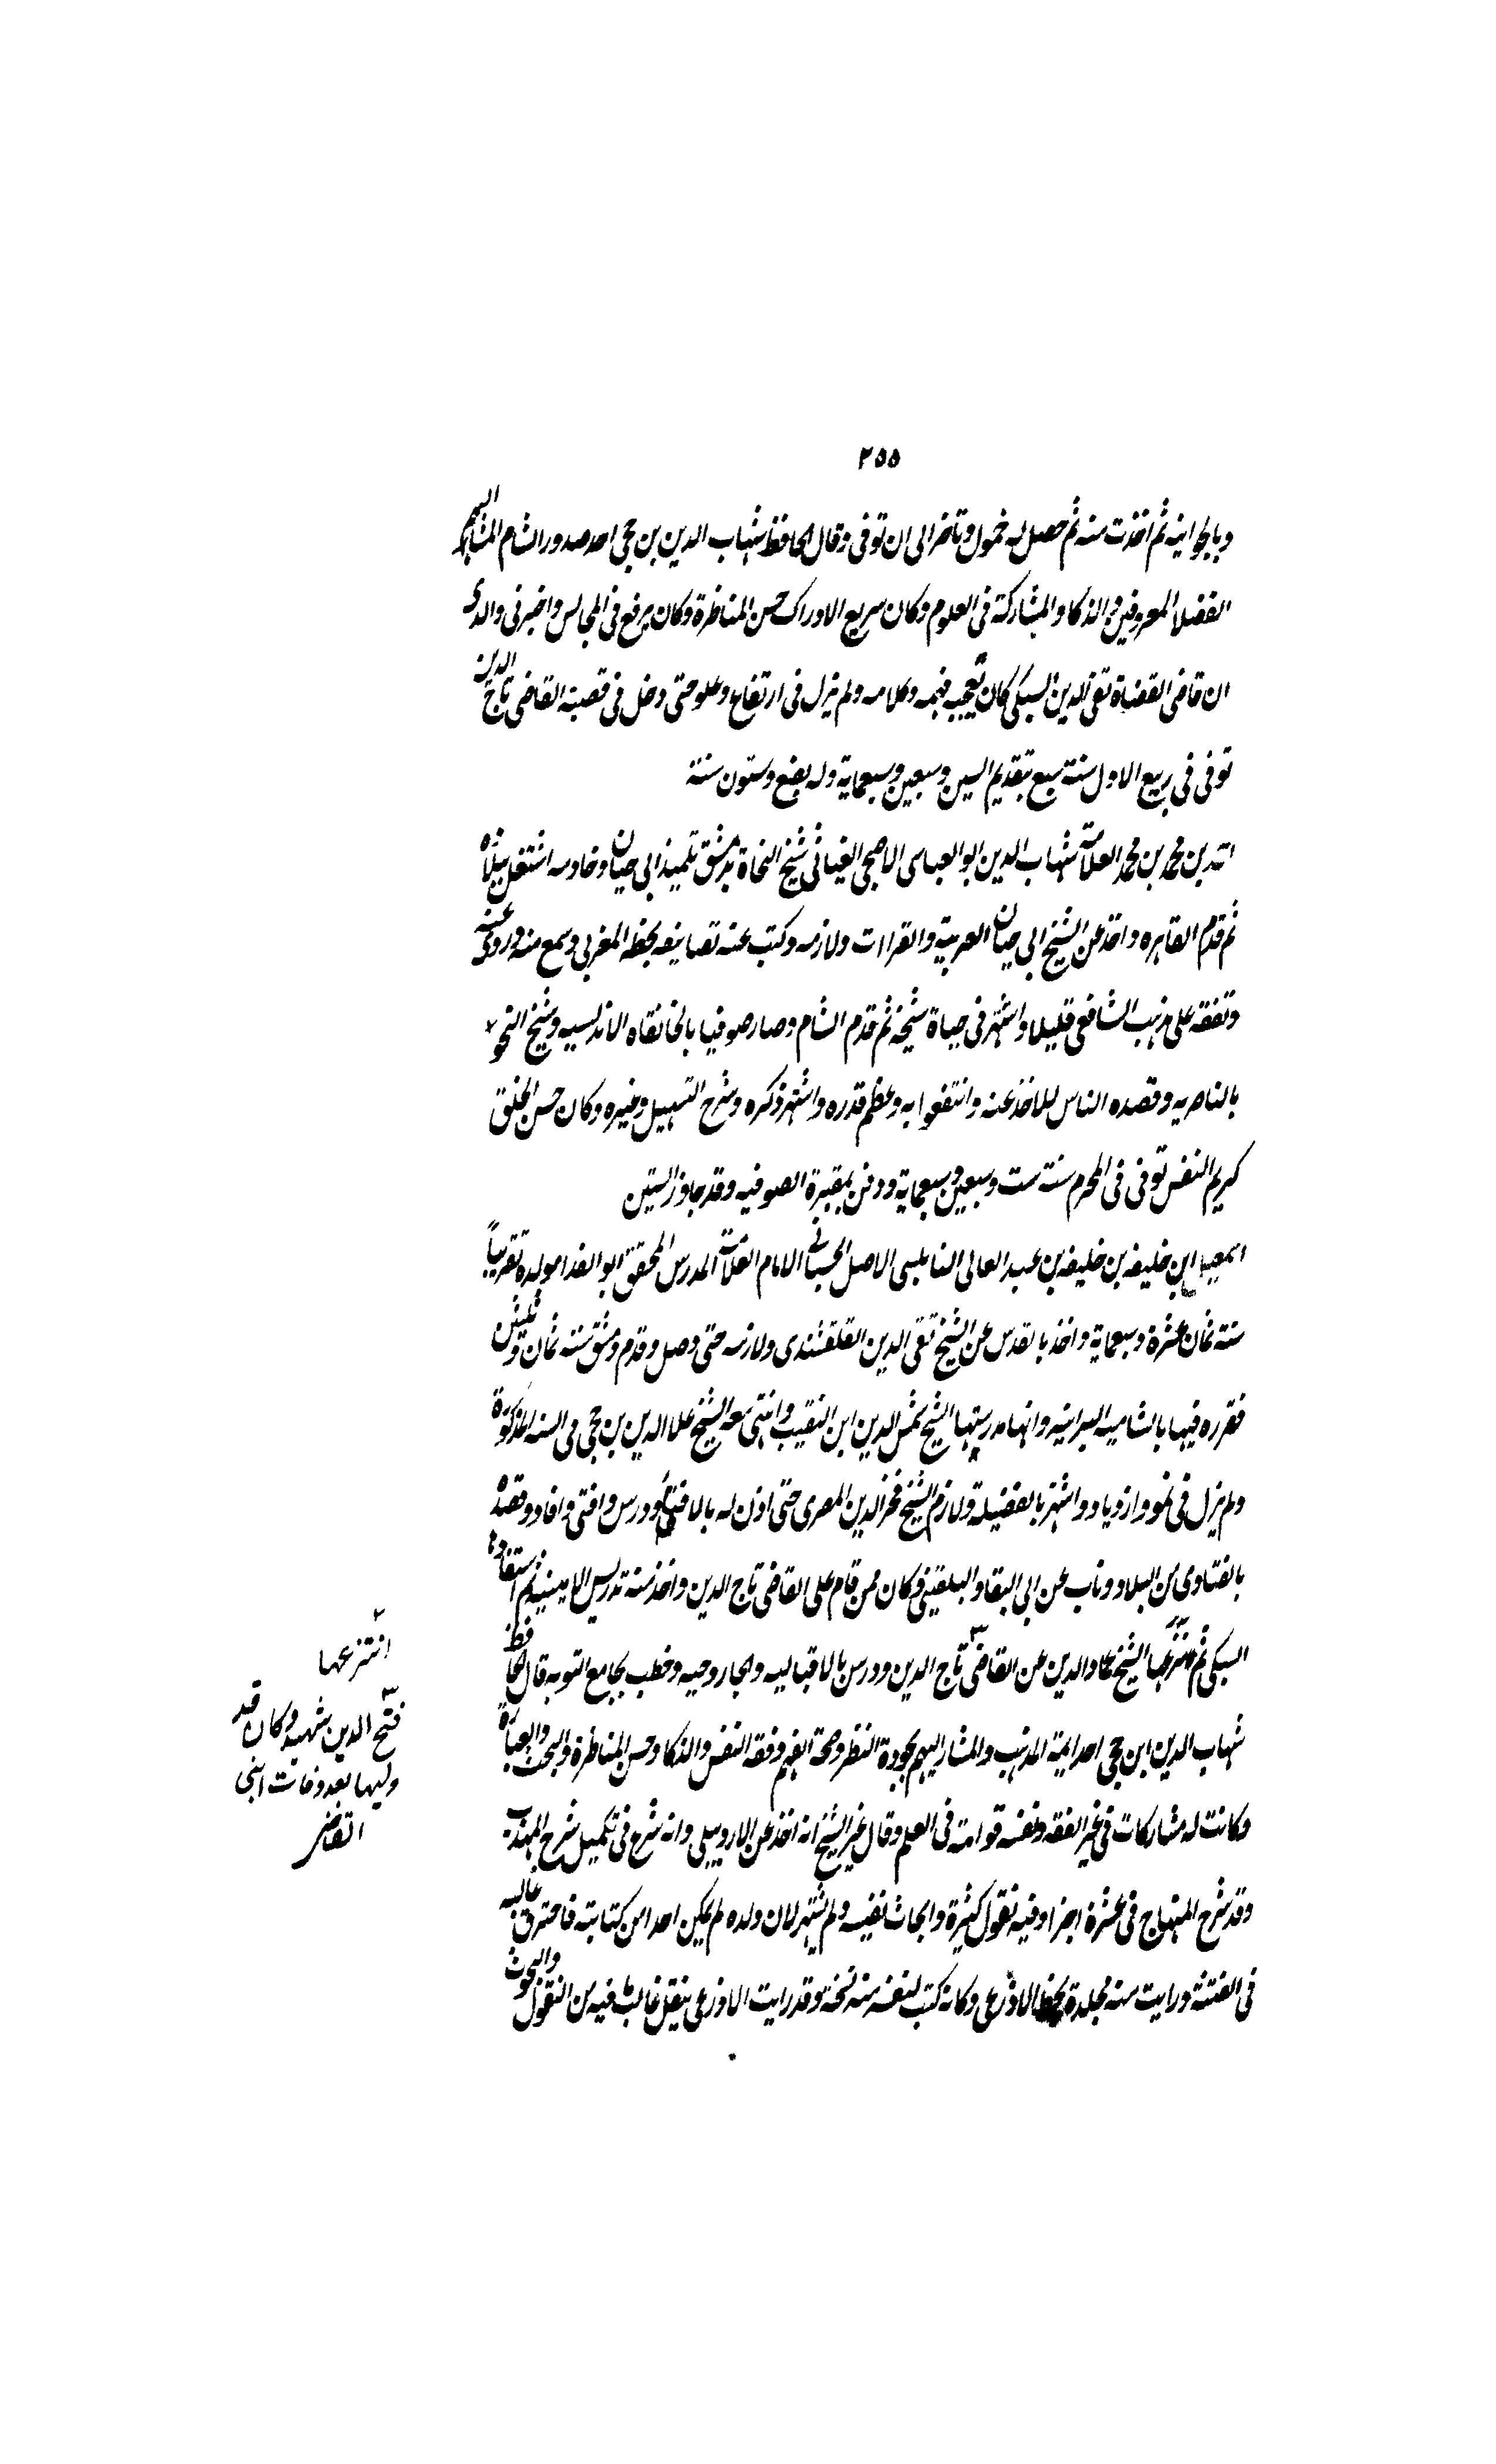 ٢٥٥
وبالجوانيه ثم اخذت منه ثم حصل له خمول وتاخر الى ان توفى وقال الحافظ شهاب الدين بن حجى احد صدور الشام المشار اليهم
الفضلا المعروفين والذكا والمشاركة فى العلوم وكان سريع الادراك حسن المناظرة وكان يرفع فى المجالس واخبرنى والدى
ان قاضى القضاة تقى الدين السبكى كان يعجبه فهمه وكلامه ولم يزل فى ارتفاع وعلو حتى دخل فى قصبة القاضى تاج الدين
توفى فى ربيع الاول سنة سبع بتقديم السين وسبعين وسبعماية وله بضع وستون سنة
احمد بن محمد بن محمد العلامة شهاب الدين ابو العباس الاصبحى العنابى شيخ النحاة بدمشق تلميذ ابى حيان وخادمه اشتغل ببلاده
ثم قدم القاهره واخذ عن الشيخ ابى حيان العربية والقراات ولازمه وكتب عنه تصانيفه بخطه المغربى وسمع منه وروى عنه
وتفقه على مذهب الشافعى قليلا واشتهر فى حياة شيخه ثم قدم الشام وصار صوفيا بالخانقاه الاندلسيه وشيخ النحو
بالناصريه وقصده الناس للاخذ عنه وانتفعوا به وعظم قدره واشتهر ذكره وشرح التسهيل وغيره وكان حسن الخلق
كريم النفس توفى فى المحرم سنة ست وسبعين وسبعماية ودفن بمقبرة الصوفيه وقد جاوز الستين
اسمعيل بن خليفه بن خليفه بن عبد العالى النابلسى الاصل الحسبانى الامام العلامة المدرس المحقق ابو الفدا مولده تقريباً
سنة ثمان عشرة وسبعماية واخذ بالقدس عن الشيخ تقى الدين القلقشندى ولازمه حتى فضل وقدم دمشق سنة ثمان وثلثين
فقرره فيها بالشاميه البرانيه وانهاه مدرستها الشيخ شمس الدين ابن النقيب وانتهى معه الشيخ علا الدين بن حجى فى السنه المذكورة
ولم يزل فى نمو وازدياد واشتهر بالفضيلة ولازم الشيخ فخر الدين المصرى حتى اذن له بالافتا ودرس وافتى وافاد وقصد
بالفتاوى من البلاد وناب عن ابى البقا والبلقينى وكان ممن قام على القاضى تاج الدين واخذ منه تدريس الامينيه ثم استعادها
السبكى ثم الشيخ عماد الدين عن القاضى تاج الدين ودرس بالاقباليه والجاروخيه وخطب بجامع التوبه قال الحافظ
شهاب الدين ابن حجى احد ايمة المذهب والمشار اليهم بجودة النظر وصحة الفهم وفقه النفس والذكا وحسن المناظرة والبحث والعبارة
وكانت له مشاركات فى غير الفقه ونفسه قوامة فى العلم وقال غير الشيخ انه اخذ عن الاردبيلى وانه شرع فى تكميل شرح المهذب
وقد شرح المنهاج فى عشرة اجزا وفيه نقول كثيرة وابحاث نفيسه ولم يشتهر لان ولده لم يمكن احدا من كتابته فاحترق غالبه
فى الفتنة ورايت منه مجلدة بخط الاذرعى وكانه كتب لنفسه منه نسخة وقد رايت الاذرعى ينقل غالب فيه من النقول والبحوث
انتزعها
فتح الدين شهيد وكان قد
وليها بعد وفات ابنى
القاضى